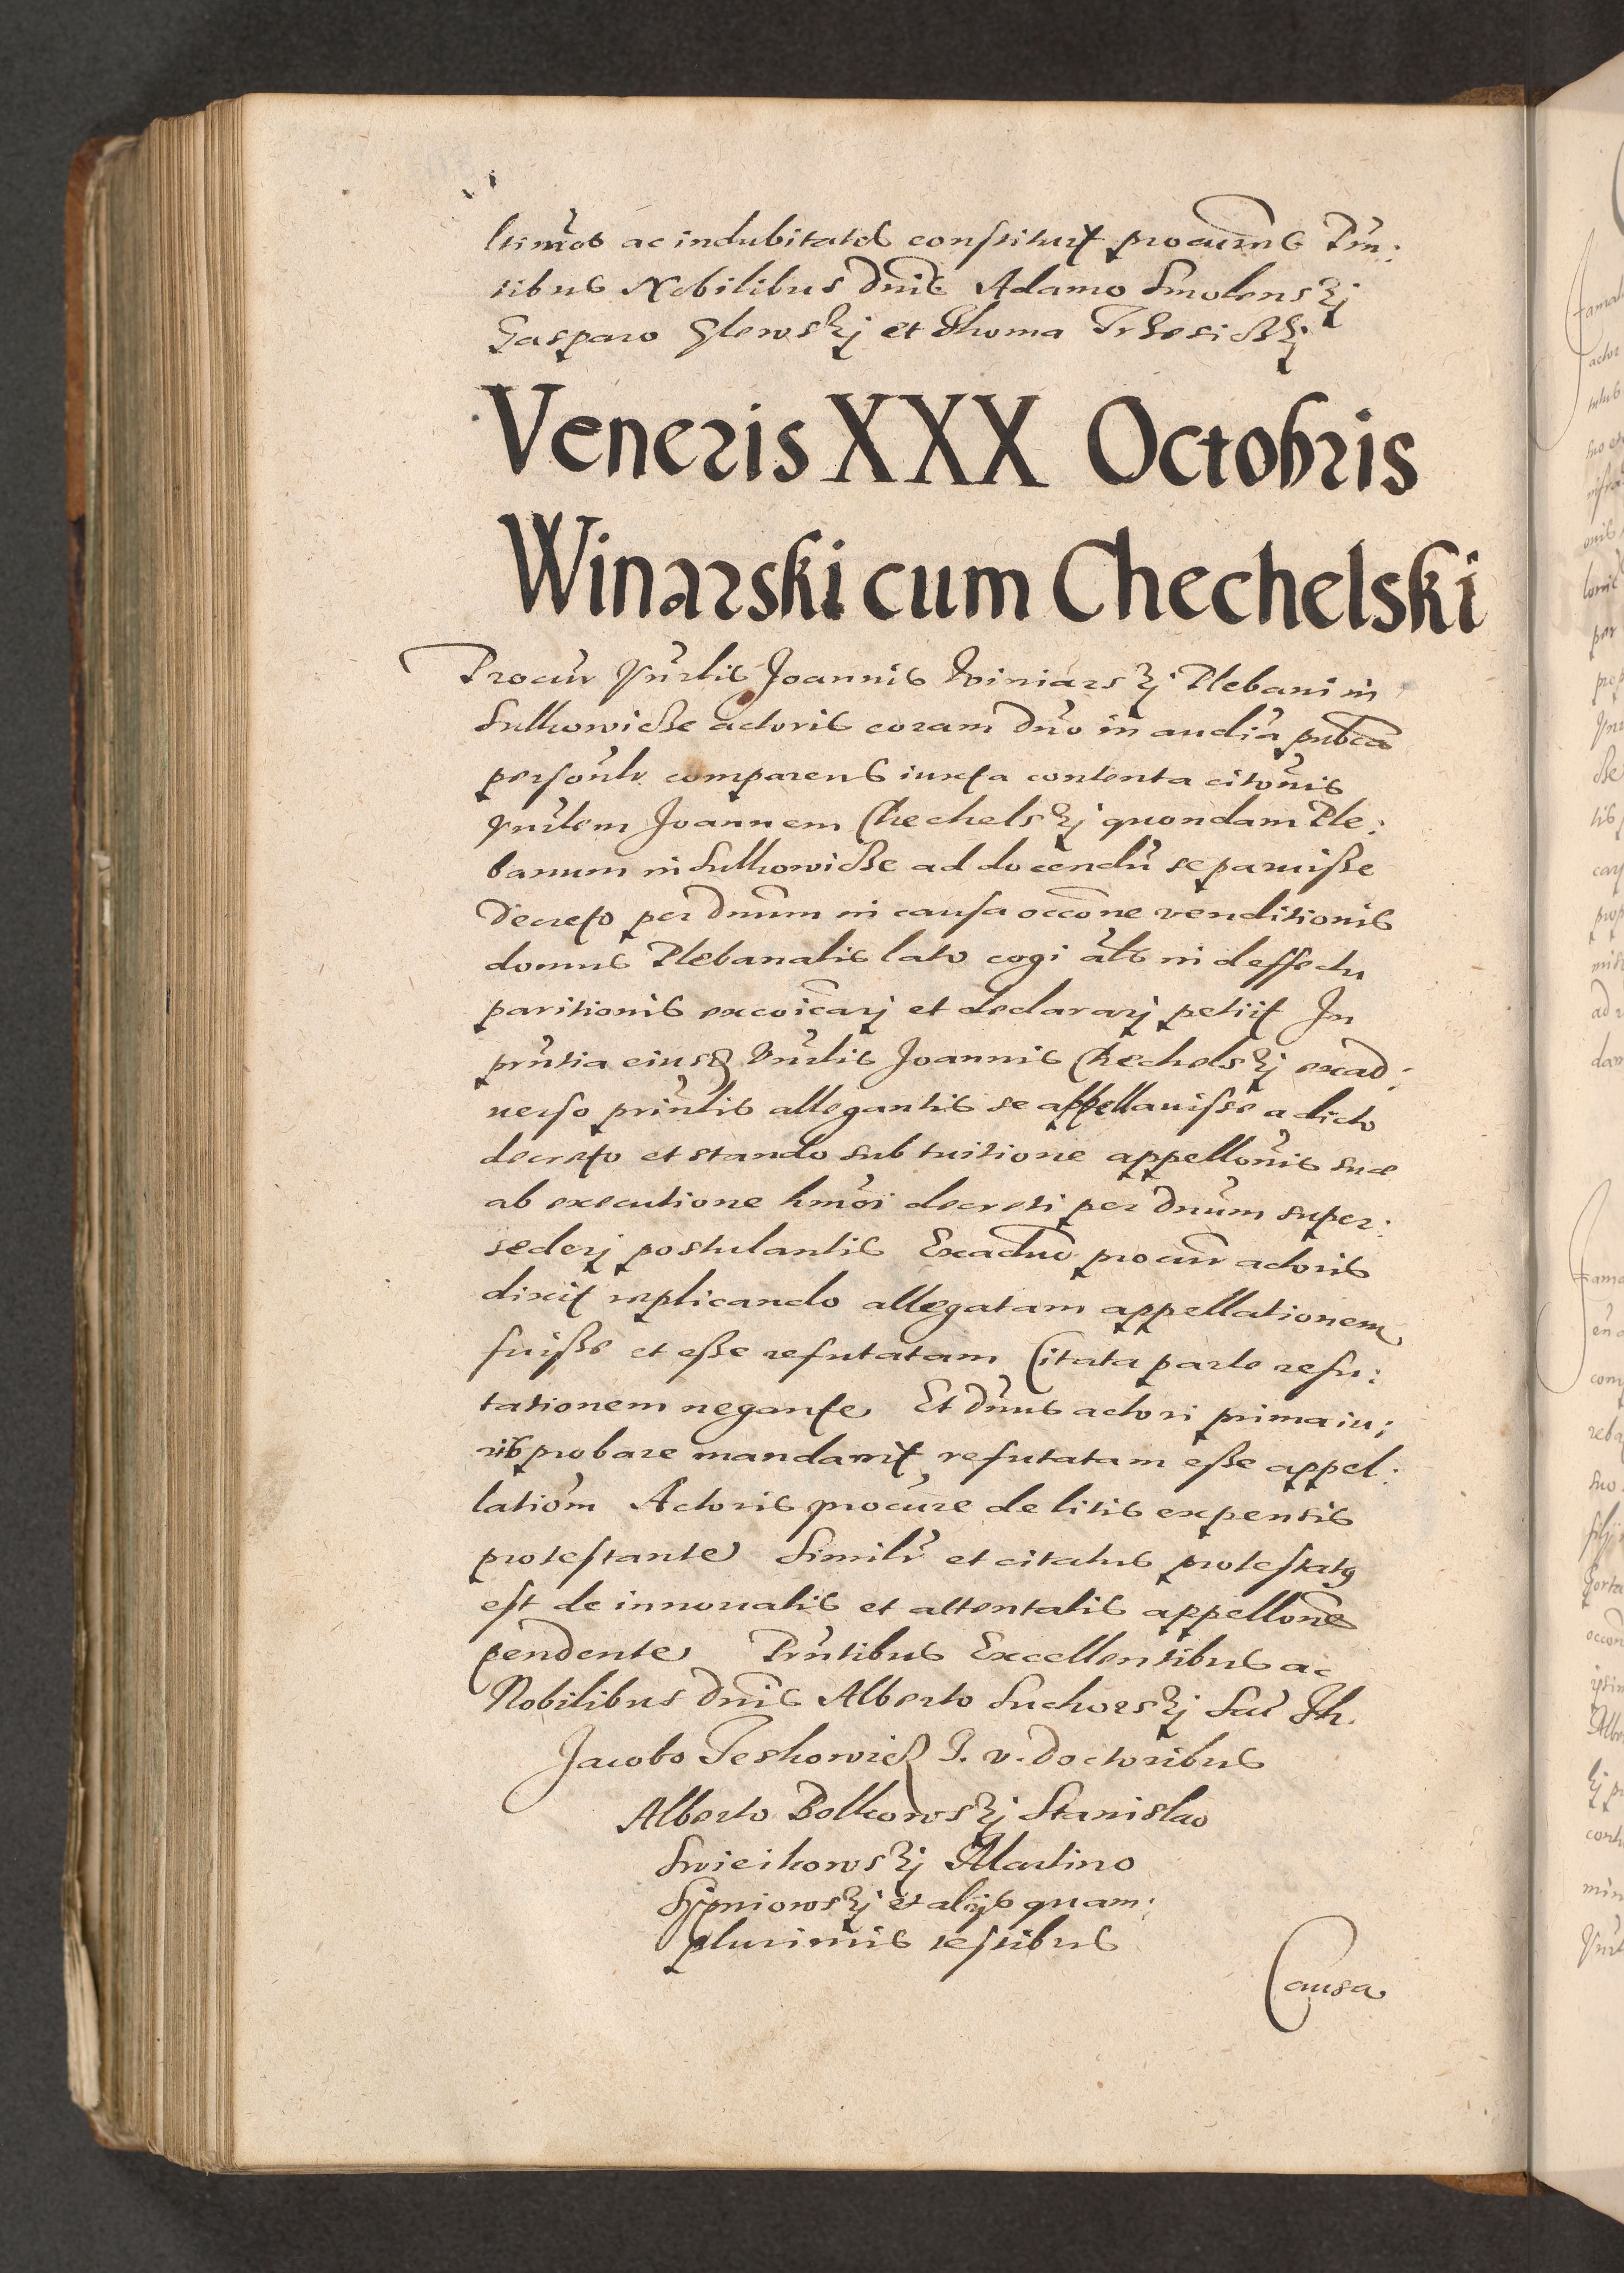 ltimos ac indubitatos constituit procures Prn:
tibus Nobilibus Dnis Adamo Smolenskj
Gasparo Glewskj et Thoma
Veneris XXX Octobris
Winarski cum Chechelski
Procur Vnrlis Joannis Winiarskj Plebani in
Sulkowicze actoris coram Dno in audia publca
personlr comparens iuxta contenta citonis
Vnrlem Joannem Chechelskj quondam Ple:
banum in Sulkowicze ad docendu se paruisse
Decreto per Dnum in causa occone venditionis
domus Plebanalis lato cogi als in deffectu
paritionis excoicarj et declararj petiit In
prntia eiusd Vnrlis Joannis Chechelskj exad:
uerso prinlis allegantis se appellauisse a dicto
decreto et stando sub tuitione appellonis suæ
ab executione hmoi decreti per Dnum super:
sederj postulantis Exaduo procur actoris
dixit replicando allegatam appellationem
fuisse et esse refutatam Citata parte refu:
tationem negante Et Dnus actori prima iu:
ris probare mandauit refutatam esse appel:
lationm Actoris procure de litis expensis
protestante Similr et citatus protestatg
est de innouatis et attentatis appellone
pendente Prntibus Excellentibus ac
Nobilibus Dnis Alberto Suchorskj Sac Th.
Jacobo Teskowicz J. v. Doctoribus
Alberto Belkowskj Stanislao
Swieikowskj Martino
Sypniowskj et alijs quam:
plurimis testibus
Causa